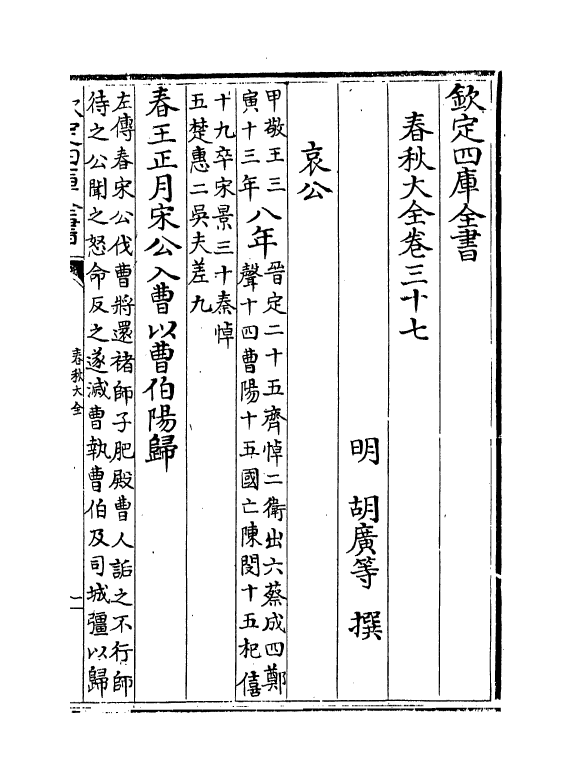 欽定四庫全書
春秋大全卷三十七
明 胡廣等 撰
哀公
甲敬王三
寅十三年
八年
晉定二十五齊悼二衛出六蔡成四鄭
聲十四曹陽十五國亡陳閔十五杞僖
十九卒宋景三十秦悼
五楚惠二吳夫差九
春王正月宋公入曹以曹伯陽歸
左傳春宋公伐曹將還褚師子肥殿曹人詬之不行師
待之公聞之怒命反之遂滅曹執曹伯及司城彊以歸
欽定四庫全書
春秋大全